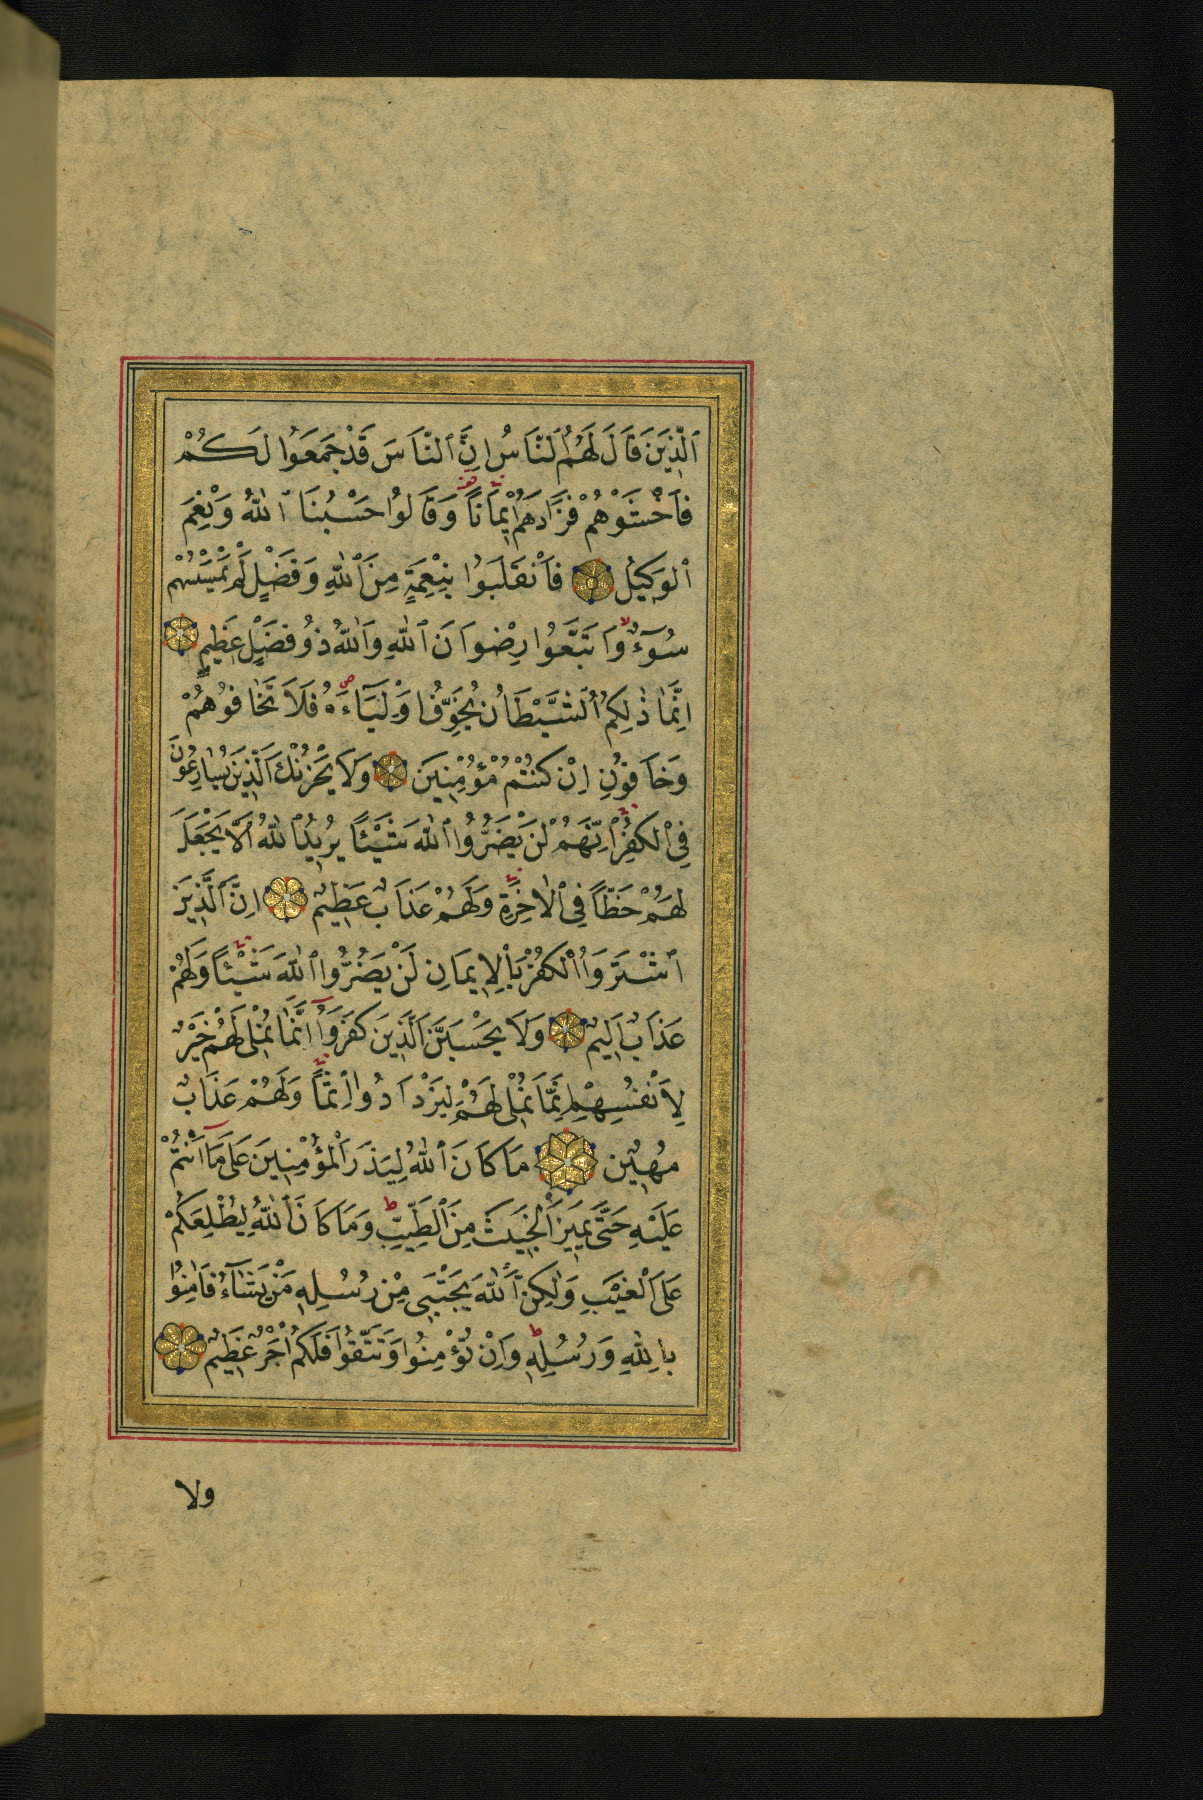 ٱلَّذِينَ قَالَ لَهُمُ ٱلنَّاسُ اِنَّ ٱلنَّاسَ قَدْ جَمَعُوا لَكُمْ
فَاخْشَوْهُمْ فَزَادَهُمْ اِيْمَانًا وَقَالُوا حَسْبُنَا ٱللهُ وَنِعْمَ
ٱلوَكِيلُ فَانْقَلَبُوا بِنِعْمَةٍ مِنَ ٱللهِ وَفَضْلٍ لَمْ يَمْسَسْهُمْ
سُوۤءٌ وَاتَّبَعُوا رِضْوَانَ ٱللهِ وَٱللهُ ذُو فَضْلٍ عَظِيمٍ
اِنَّمَا ذٰلِكُمُ ٱلشَّيْطَانُ يُخَوِّفُ اَوْلِيَآءَهُ فَلَا تَخَافُوهُمْ
وَخَافُونِ اِنْ كُنْتُمْ مُؤْمِنِينَ وَلَا يَحْزُنْكَ ٱلَّذِينَ يُسَارِعُونَ
فِى ٱلْكُفْرِ اِنَّهُمْ لَنْ يَضُرُّوا ٱللهَ شَيْئًا يُرِيدُ ٱللهُ اَلَّا يَجْعَلَ
لَهُمْ حَظًّا فِى ٱلْاٰخِرَةِ وَلَهُمْ عَذَابٌ عَظِيمٌ اِنَّ ٱلَّذِينَ
ٱشْتَرَوُا ٱلْكُفْرَ بِٱلْاِيمَانِ لَنْ يَضُرُّوا ٱللهَ شَيْئًا وَلَهُمْ
عَذَابٌ اَلِيمٌ وَلَا يَحْسَبَنَّ ٱلَّذِينَ كَفَرُوۤا اَنَّمَا نُمْلِى لَهُمْ خَيْرٌ
لِاَنْفُسِهِمْ اِنَّمَا نُمْلِى لَهُمْ لِيَزْدَادُوۤا اِثْمًا وَلَهُمْ عَذَابٌ
مُهِينٌ مَا كَانَ ٱللهُ لِيَذَرَ ٱلْمُؤْمِنِينَ عَلَى مَاۤ اَنْتُمْ
عَلَيْهِ حَتَّى يَمِيزَ ٱلْخَبِيثَ مِنَ ٱلطَّيِّبِ وَمَا كَانَ ٱللهُ لِيُطْلِعَكُمْ
عَلَى ٱلْغَيْبِ وَلٰكِنَّ ٱللهَ يَجْتَبِى مِنْ رُسُلِهِ مَنْ يَشَآءُ فَاٰمِنُوا
بِاللهِ وَرُسُلِهِ وَاِنْ تُؤْمِنُوا وَتَتَّقُوا فَلَكُمْ اَجْرٌ عَظِيمٌ
ولا